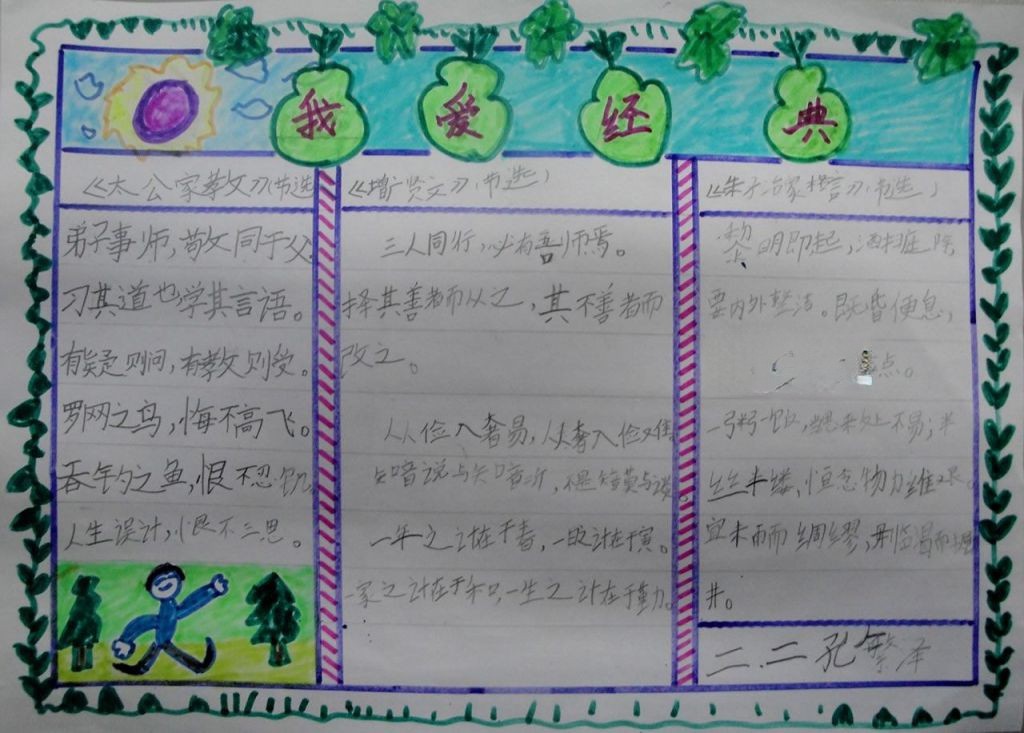 我爱经典
《太公家教文》(节选
弟子事师,敬文同于父
习其道也,学其言语。
有疑则问,有教文则受。
罗网之鸟,悔不高飞。
吞钓之鱼,恨不忍饥
人生误计,恨不三思。
《增广贤文》(节选)
三人同行,必有吾师焉。
择其善者而从之,其不善者而
改之。
从俭入奢易,从奢入俭难
知音说与知音听,不是知音莫与谈
一年之计在于春,一日之计在于寅。
一家之计在于和,一生之计在于勤。
《朱子治家格言》(节选)
黎明即起,洒扫庭除
要内外整洁。既昏便息,
点。
一粥一饭,当思来处不易;半
丝半缕,恒念物力维艰。
宜未雨而绸缪,毋临渴而掘
井。
二.二孔繁泽